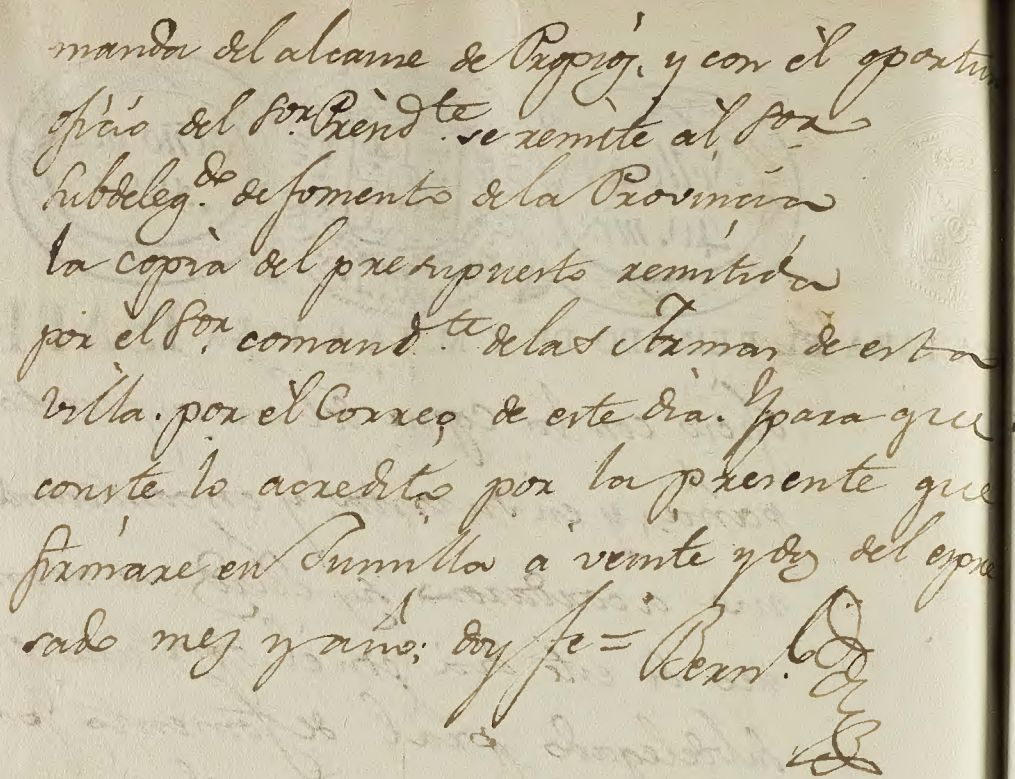 manda del alcanse de Propios, y con el oportun
oficio del Sor. Presidte. se remite al Sor
Subdelegdo. de fomento de la Provincia
la copia del presupuesto remitida
por el Sor. comandte de las Armas de esta
villa. por el Correo de este dia. Y para que
conste lo acredito por la presente que
firmare en Jumilla a veinte y dos del expre
sado mes y año; doy fe=